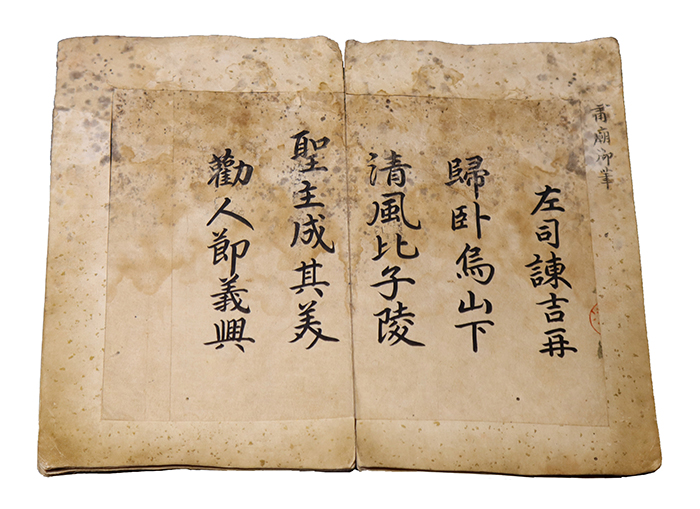 肅廟御筆
左司諫吉再
歸卧烏山下
清風比子陵
聖主成其美
勸人節義興